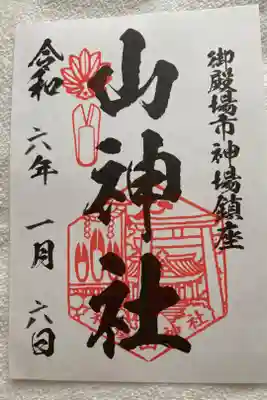 御殿場市神場鎮座
山神社
令和六年一月六日